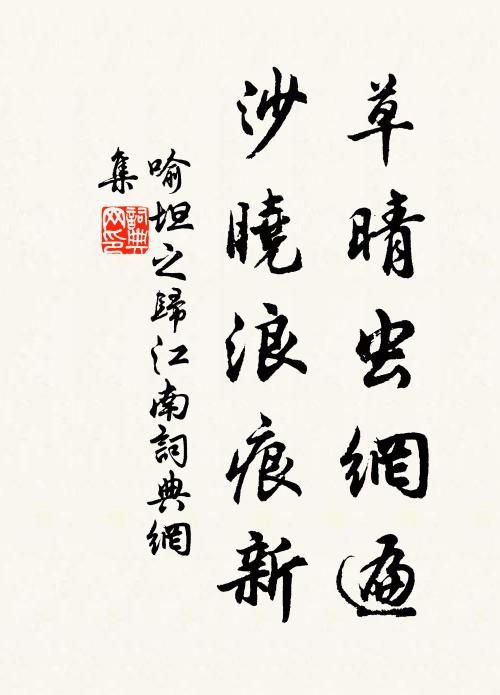 草晴虫網遍
沙曉浪痕新
喻坦之歸江南詞典網
集
詞典
网印